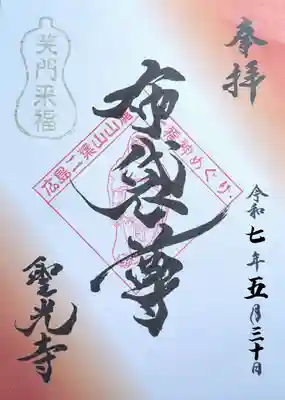 奉拝
令和七年五月三十日
布袋尊
広島二葉山山麓七福神めぐり
笑門来福
聖光寺